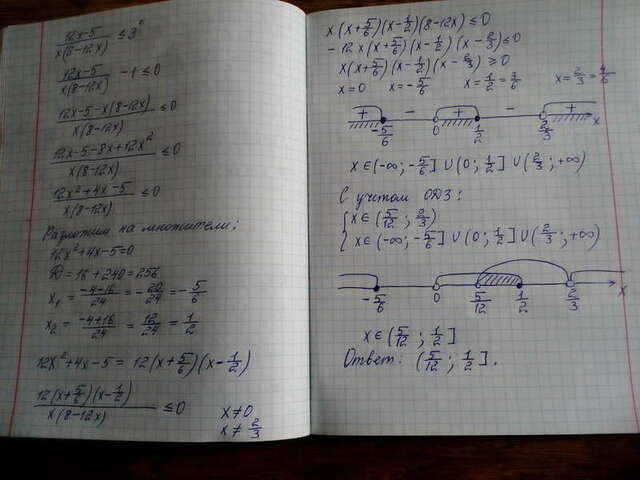 (12x-5)/(x(8-12x)) ≤ 3⁰
(12x-5)/(x(8-12x)) -1 ≤ 0
(12x-5-x(8-12x))/(x(8-12x)) ≤ 0
(12x-5-8x+12x²)/(x(8-12x)) ≤ 0
(12x²+4x-5)/(x(8-12x)) ≤ 0
Разложим на множители:
12x²+4x-5=0
D=16+240=256
x₁ = (-4-16)/24 = -20/24 = -5/6
x₂ = (-4+16)/24 = 12/24 = 1/2
12x²+4x-5 = 12(x+5/6)(x-1/2)
(12(x+5/6)(x-1/2))/(x(8-12x)) ≤ 0
x≠0
x≠2/3
x(x+5/6)(x-1/2)(8-12x) ≤ 0
-12x(x+5/6)(x-1/2)(x-2/3) ≤ 0
x(x+5/6)(x-1/2)(x-2/3) ≥ 0
x=0 x=-5/6 x=1/2=3/6 x=2/3=4/6
+ - + - +
-5/6 0 1/2 2/3 x
x∈(-∞; -5/6] ∪ (0; 1/2] ∪ (2/3; +∞)
С учетом ОДЗ:
{ x∈(5/12; 2/3)
{ x∈(-∞; -5/6] ∪ (0; 1/2] ∪ (2/3; +∞)
-5/6 0 5/12 1/2 2/3 x
x∈(5/12; 1/2]
Ответ: (5/12; 1/2].